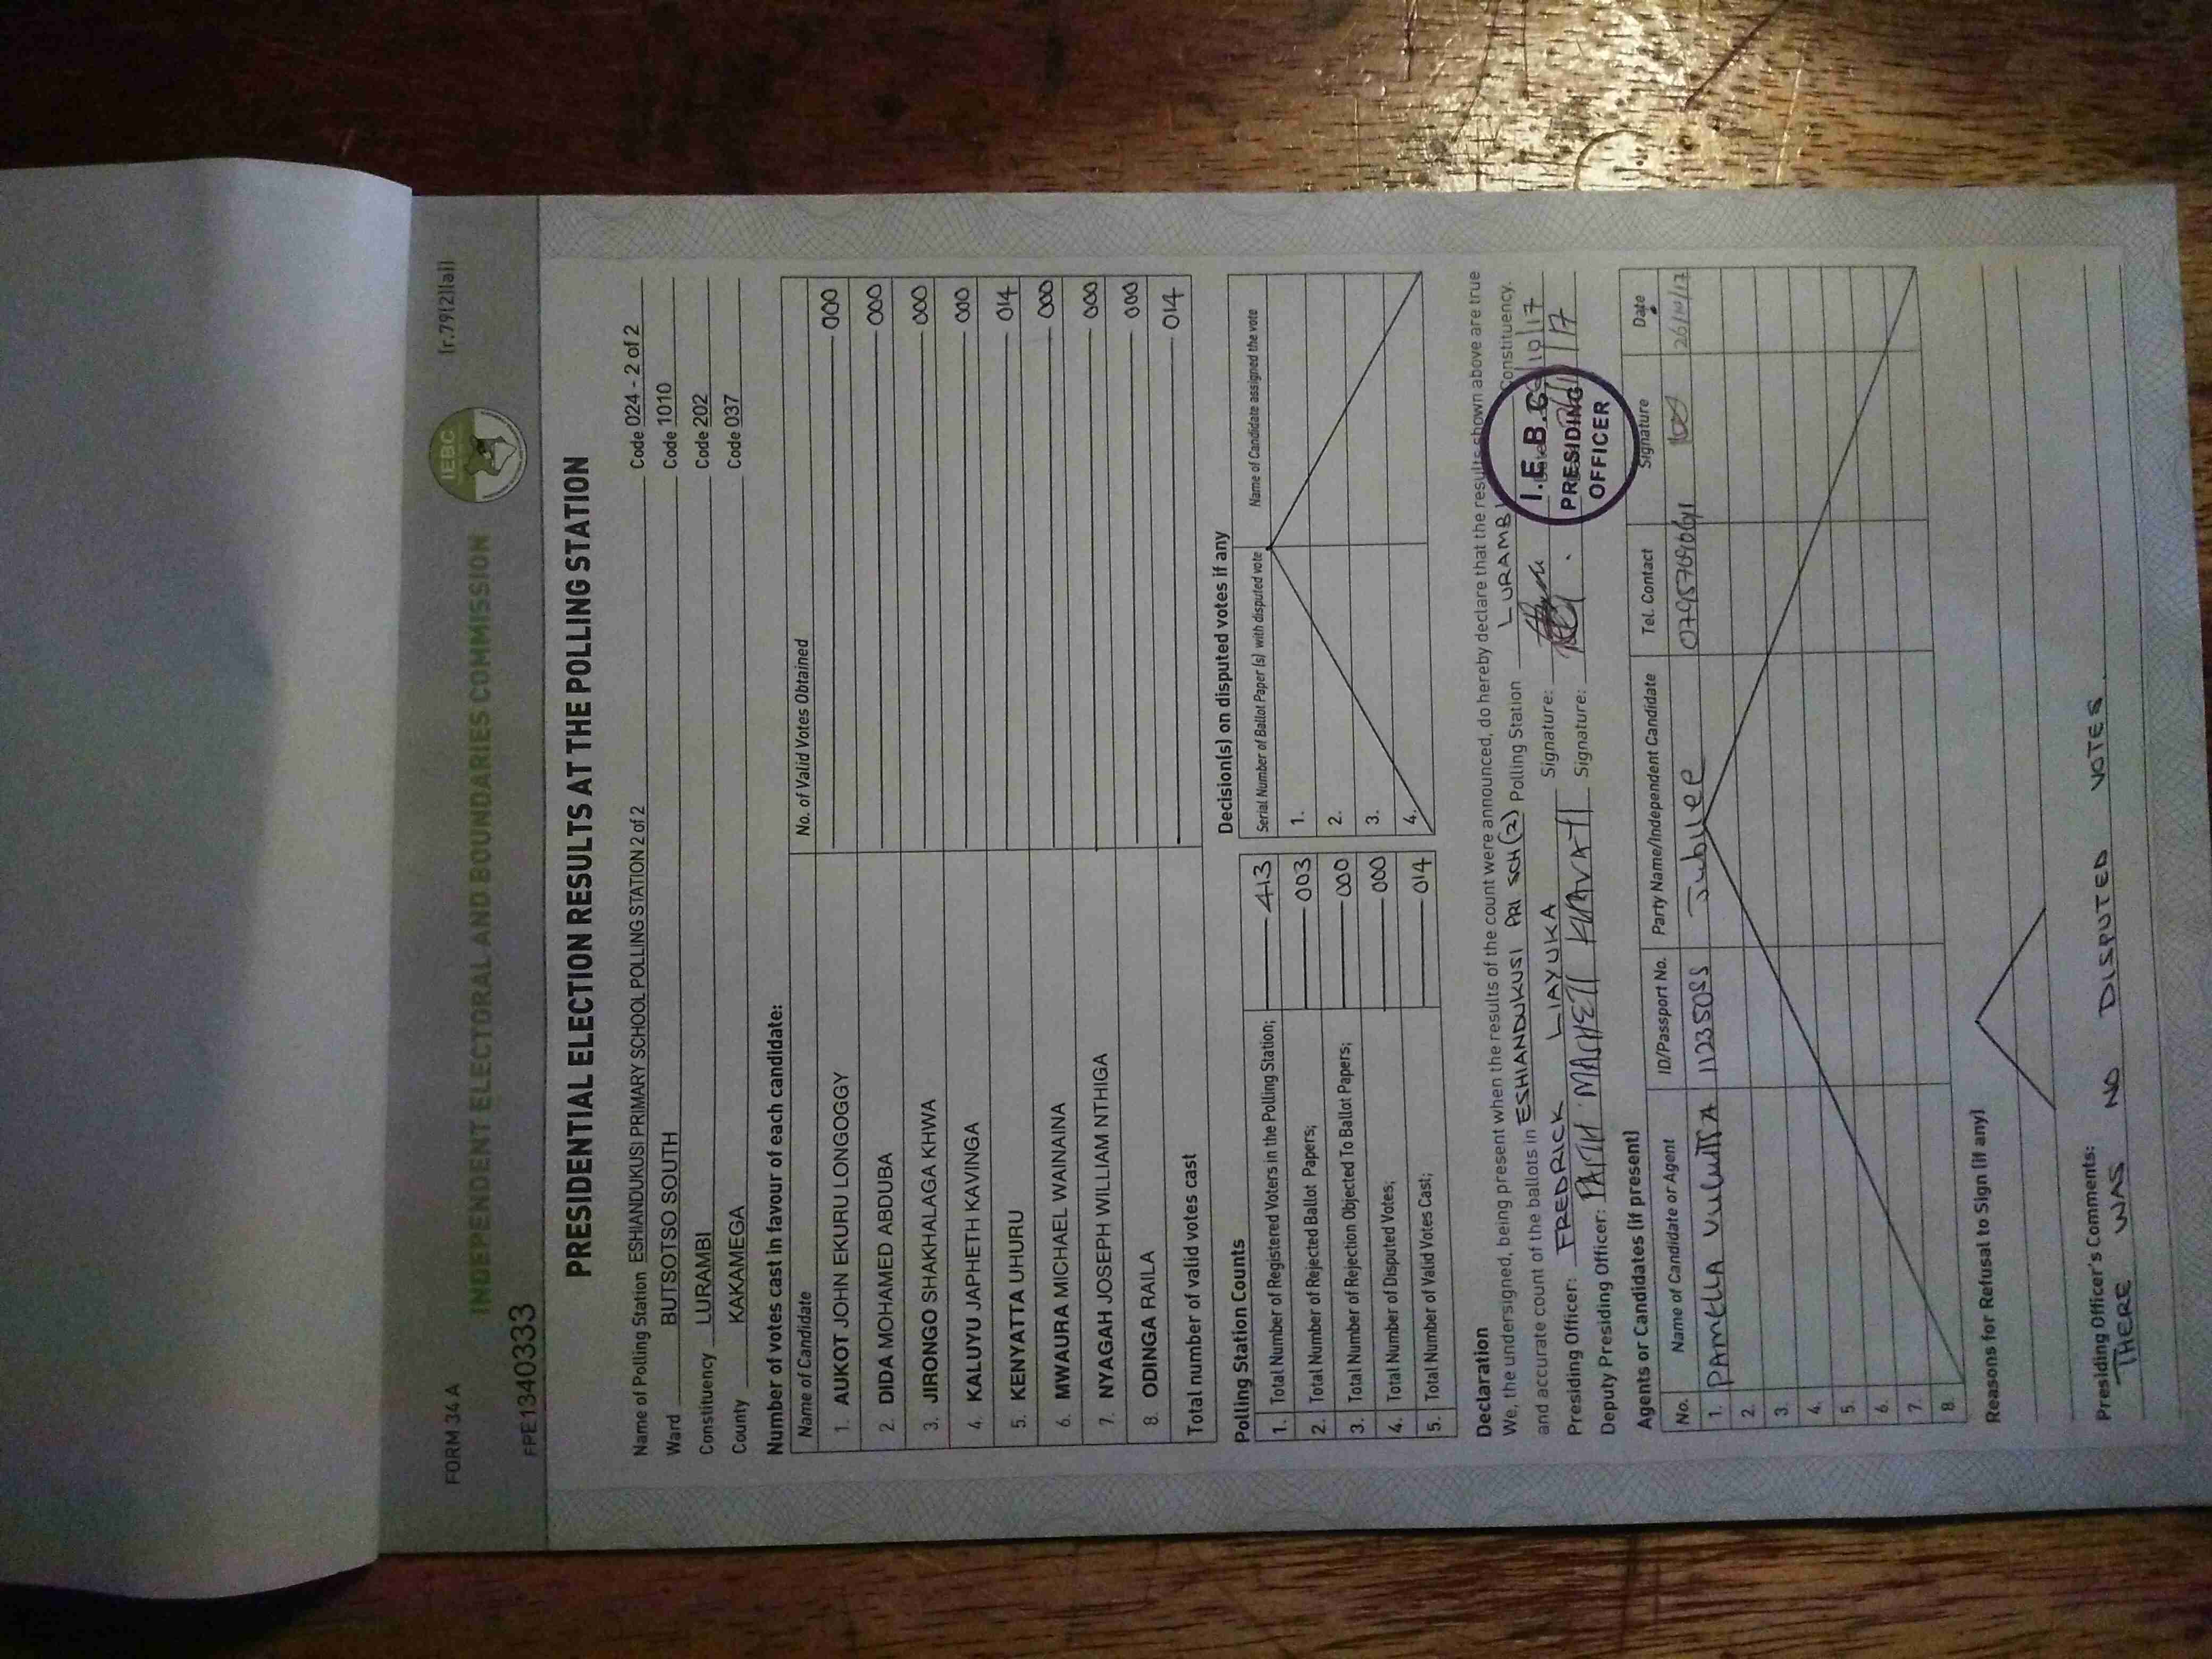 FORM 34 A
INDEPENDENT ELECTORAL AND BOUNDARIES COMMISSION
IEBC
[r.79(2)(a)]
FPE1340333
PRESIDENTIAL ELECTION RESULTS AT THE POLLING STATION
Name of Polling Station ESHIANDUKUSI PRIMARY SCHOOL POLLING STATION 2 of 2 Code 024 - 2 of 2
Ward BUTSOTSO SOUTH Code 1010
Constituency LURAMBI Code 202
County KAKAMEGA Code 037
Number of votes cast in favour of each candidate:
Name of Candidate No. of Valid Votes Obtained
1. AUKOT JOHN EKURU LONGOGGY 000
2. DIDA MOHAMED ABDUBA 000
3. JIRONGO SHAKHALAGA KHWA 000
4. KALUYU JAPHETH KAVINGA 000
5. KENYATTA UHURU 014
6. MWAURA MICHAEL WAINAINA 000
7. NYAGAH JOSEPH WILLIAM NTHIGA 000
8. ODINGA RAILA 000
Total number of valid votes cast 014
Polling Station Counts
1. Total Number of Registered Voters in the Polling Station; 413
2. Total Number of Rejected Ballot Papers; 003
3. Total Number of Rejection Objected To Ballot Papers; 000
4. Total Number of Disputed Votes; 000
5. Total Number of Valid Votes Cast; 014
Decision(s) on disputed votes if any
Serial Number of Ballot Paper (s) with disputed vote Name of Candidate assigned the vote
1.
2.
3.
4.
Declaration
We, the undersigned, being present when the results of the count were announced, do hereby declare that the results shown above are true
and accurate count of the ballots in ESHIANDUKUSI PRI SCH (2) Polling Station LURAMBI Constituency.
Presiding Officer: FREDRICK LIAYUKA Signature: /10/17
Deputy Presiding Officer: FAITH Signature: /17
I.E.B.C
PRESIDING
OFFICER
Agents or Candidates (if present)
No. Name of Candidate or Agent ID/Passport No. Party Name/Independent Candidate Tel. Contact Signature Date
1. PAMELLA Jubilee 26/10/17
2.
3.
4.
5.
6.
7.
8.
Reasons for Refusal to Sign (if any)
Presiding Officer's Comments:
THERE WAS NO DISPUTED VOTES.